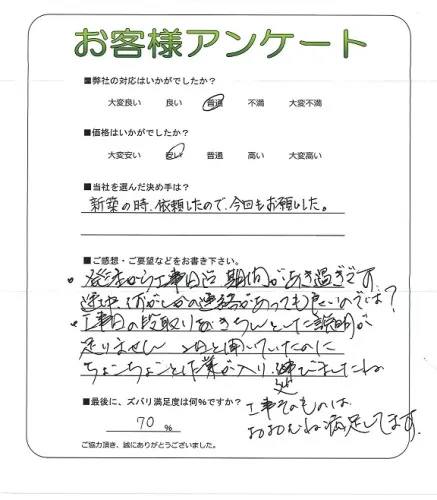 お客様アンケート
■弊社の対応はいかがでしたか?
大変良い 良い 普通 不満 大変不満
■価格はいかがでしたか?
大変安い 安い 普通 高い 大変高い
■当社を選んだ決め手は?
新築の時、依頼したので、今回もお願いした。
■ご感想・ご要望などをお書き下さい。
発注から工事日迄期間があき過ぎです
途中何がしかの連絡があっても良いのでは?
工事日の段取りもきちんとした説明が
足りません 2日と聞いていたのに
ちょんちょんと作業が入り、延びましたね
■最後に、ズバリ満足度は何%ですか?
70 %
工事そのものは
おおむね満足してます。
ご協力頂き、誠にありがとうございました。